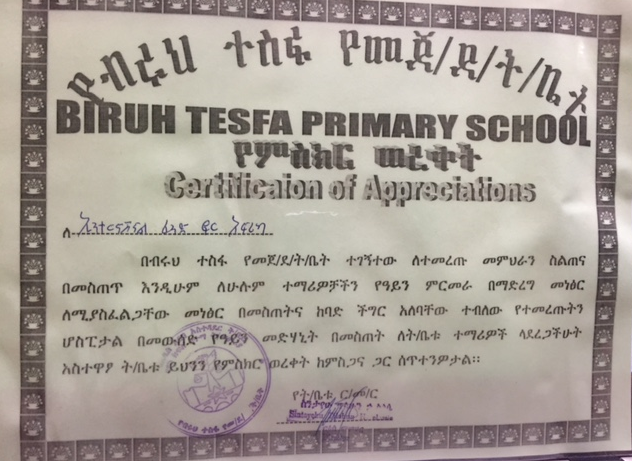 የብሩህ ተስፋ የመጀ/ደ/ት/ቤት
BIRUH TESFA PRIMARY SCHOOL
የምስክር ወረቀት
Certificaion of Appreciations
ለ ኢንተርናሽናል ፈንድ ፎር አፍሪካ
በብሩህ ተስፋ የመጀ/ደ/ት/ቤት ተገኝተው ለተመረጡ መምህራን ስልጠና
በመስጠት እንዲሁም ለሁሉም ተማሪዎቻችን የዓይን ምርመራ በማድረግ መነፅር
ለሚያስፈልጋቸው መነፅር በመስጠትና ከባድ ችግር አለባቸው ተብለው የተመረጡትን
ሆስፒታል በመውሰድ የዓይን መድሃኒት በመስጠት ለት/ቤቱ ተማሪዎች ላደረጋችሁት
አስተዋፆ ት/ቤቱ ይህንን የምስክር ወረቀት ከምስጋና ጋር ሰጥተንዎታል፡፡
የት/ቤቱ ር/መ/ር